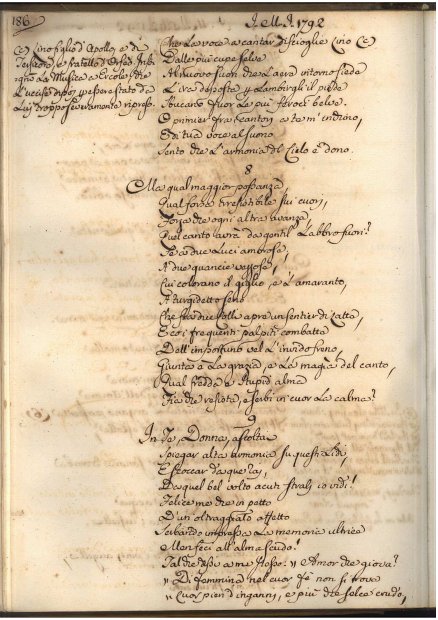 186
J. M. J. 1792
(c) Lino figlio d'Apollo, e di
Tersicore, e fratello d'Orfeo, Inse-
gnò la Musica a Ercole, che
L'uccise dopo, per essere stato da
Lui troppo severamente ripreso.
Che La voce a cantar discioglie Lino (c)
Dalle più cupe selve
Al nuovo suon che L'aera intorno fiede
L'ira deposta per Lambirgli il piede
Sbucano fuor Le più feroci belve.
O primier fra i Cantori a te m'inchino,
E di tua voce al suono
Sento che L'armonia del Cielo è dono.
8
Ma qual maggior possanza,
Qual forza irresistibile sui cuori,
Forza che ogni altra avanza,
Quel canto avrà da gentil Labbro fuori?
Se a due Luci amorose,
A due guancie vezzose,
Cui colorano il giglio, e L'amaranto,
A turgidetto seno
Che fra due colli apre un sentier di Latte,
E coi frequenti palpiti combatte
Dell'importuno vel L'invido freno,
Giunta è La grazia, e La magia del canto,
Qual fredda e stupid'alma
Fia che resista, e serbi in cuor La calma?
9
In Te, Donna, ascoltai
Spiegar alta armonia su questi Lidi,
E stoccar da que' rai,
Da quel bel volto acuti strali io vidi!
Felice me che in petto
D'un oltraggiato affetto
Serbando impressa La memoria ultrice
Men feci all'alma scudo!
Tal che dissi a me stesso: " Amor che giova?
" Di femmina nel cuor fè non si trova
" Cuor pien d'inganni, e più che selce crudo,